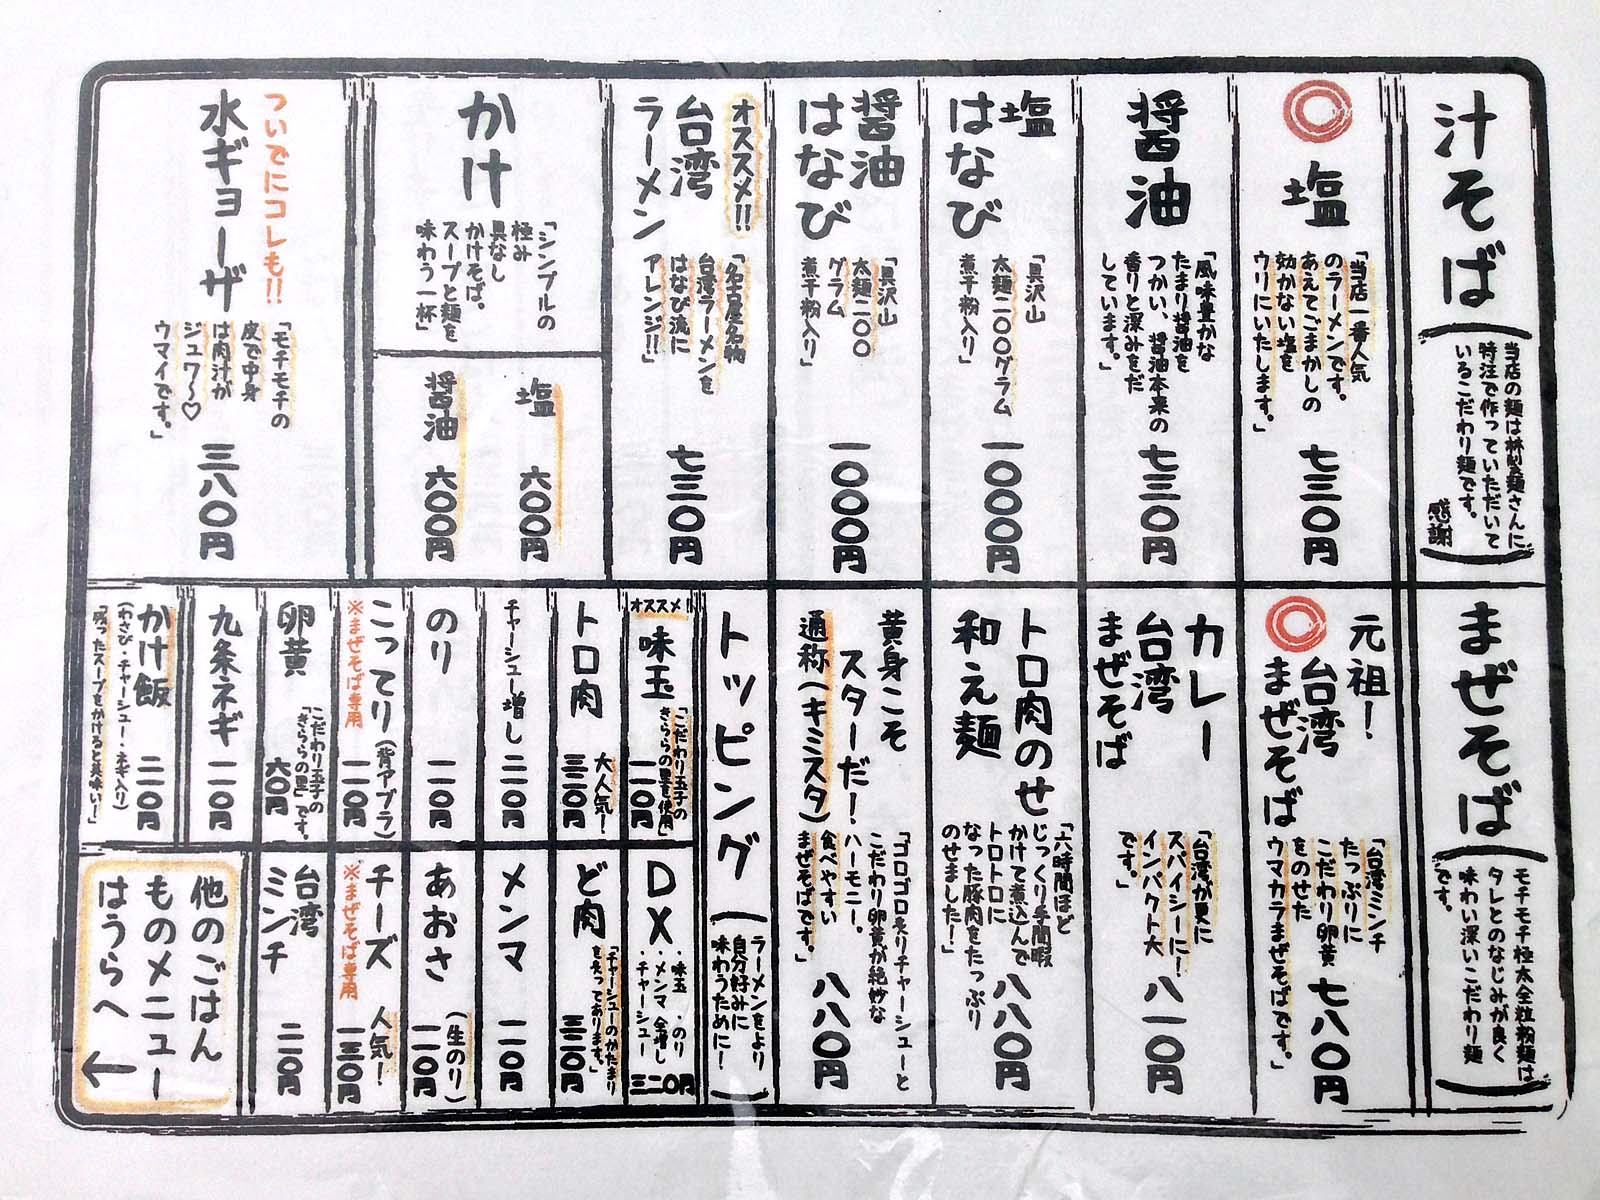 汁そば
当店の麺は林製麺さんに
特注で作っていただいて
いるこだわり麺です。
感謝
塩
「当店一番人気
のラーメンです。
あえてごまかしの
効かない塩を
ウリにいたします。」
七三〇円
醤油
「風味豊かな
たまり醤油を
つかい、醤油本来の
香りと深みをだ
しています。」
七三〇円
塩
はなび
「具沢山
太麺二〇〇グラム
煮干粉入り」
一〇〇〇円
醤油
はなび
「具沢山
太麺二〇〇
グラム
煮干粉入り」
一〇〇〇円
オススメ!!
台湾
ラーメン
「名古屋名物
台湾ラーメンを
はなび流に
アレンジ!!」
七三〇円
かけ
「シンプルの
極み
具なし
かけそば。
スープと麺を
味わう一杯」
塩 六〇〇円
醤油 六〇〇円
ついでにコレも!!
水ギョーザ
「モチモチの
皮で中身
は肉汁が
ジュワ〜♡
ウマイです。」
三八〇円
まぜそば
モチモチ極太全粒粉麺は
タレとのなじみが良く
味わい深いこだわり麺
です。
元祖!
台湾
まぜそば
「台湾ミンチ
たっぷりに
こだわり卵黄
をのせた
ウマカラまぜそばです。」
七八〇円
カレー
台湾
まぜそば
「台湾が更に
スパイシーに!
インパクト大
です。」
八一〇円
トロ肉のせ
和え麺
「六時間ほど
じっくり手間暇
かけて煮込んで
トロトロに
なった豚肉をたっぷり
のせました!」
八八〇円
黄身こそ
スターだ!
通称(キミスタ)
「ゴロゴロ炙りチャーシューと
こだわり卵黄が絶妙な
ハーモニー。
食べやすい
まぜそばです。」
八八〇円
トッピング
ラーメンをより
自分好みに
味わうために!
オススメ!!
味玉
「こだわり玉子の
きららの里を使用」
一一〇円
トロ肉
大人気!
三二〇円
チャーシュー増し 二一〇円
のり 一一〇円
こってり(背アブラ)
※まぜそば専用
一一〇円
卵黄
こだわり玉子の
「きららの里」です。
六〇円
九条ネギ 一一〇円
かけ飯 二一〇円
(わさび・チャーシュー・ネギ入り)
「残ったスープをかけると美味い!」
DX
・味玉 ・のり
・メンマ 全増し
・チャーシュー
三二〇円
ど肉
「チャーシューのかたまり
を炙ってあります。」
三二〇円
メンマ 一一〇円
あおさ
(生のり)
一一〇円
チーズ
※まぜそば専用
人気!
一三〇円
台湾
ミンチ
二一〇円
他のごはん
ものメニュー
はうらへ ←